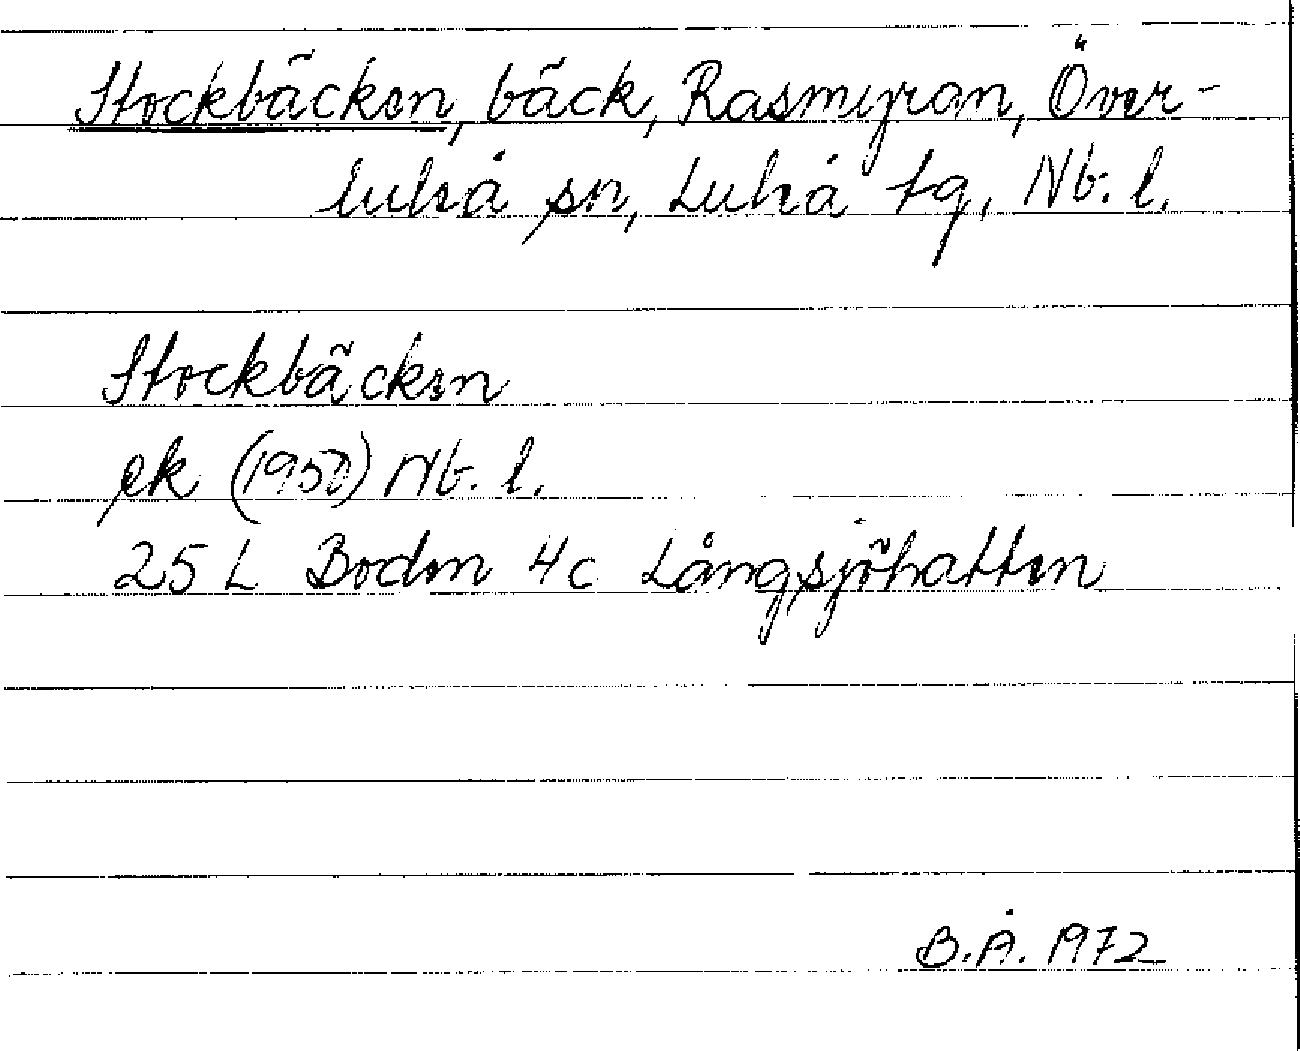 Stockbäcken, bäck, Rasmyran, Över-
luleå sn, Luleå tg, Nb. l.
Stockbäcken
ek (1950) Nb. l.
25 L Boden 4c Långsjöhatten
B.Å. 1972